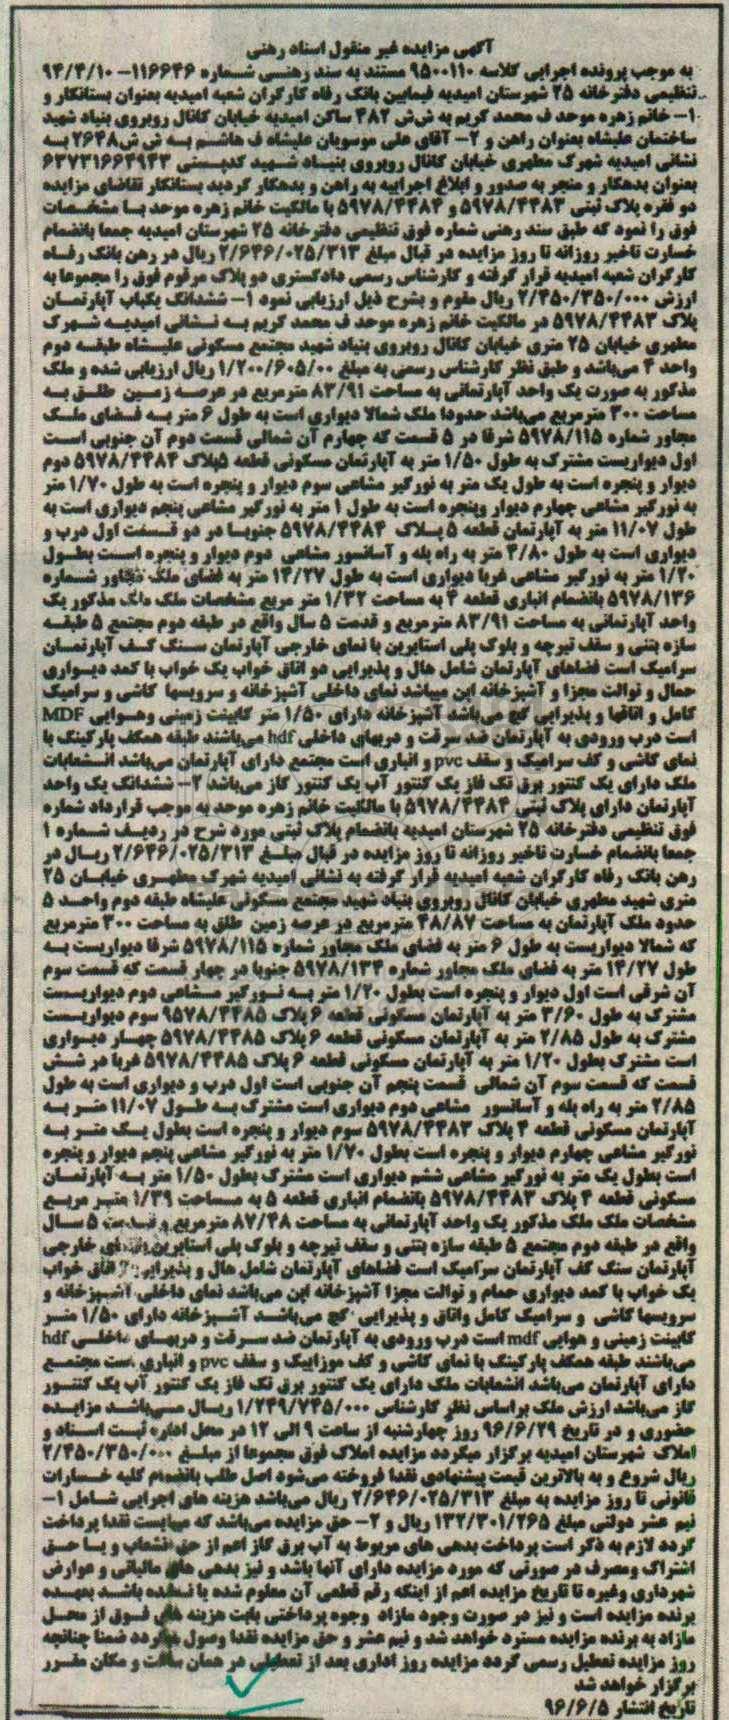 آگهی مزایده غیر منقول اسناد رهنی
به موجب پرونده اجرایی کلاسه ۹۵۰۰۱۱۰ مستند به سند رهنی شماره ۱۱۶۶۴۶- ۹۴/۴/۱۰
تنظیمی دفترخانه ۲۵ شهرستان امیدیه فیمابین بانک رفاه کارگران شعبه امیدیه بعنوان بستانکار و
۱- خانم زهره موحد ف محمد کریم به ش ش ۴۸۲ ساکن امیدیه خیابان کانال روبروی بنیاد شهید
ساختمان علیشاه بعنوان راهن و ۲- آقای علی موسویان علیشاه ف هاشم به ش ش ۲۶۴۸ به
نشانی امیدیه شهرک مطهری خیابان کانال روبروی بنیاد شهید کدپستی ۶۳۷۳۱۶۶۴۹۴۳
بعنوان بدهکار و منجر به صدور و ابلاغ اجراییه به راهن و بدهکار گردید بستانکار تقاضای مزایده
دو فقره پلاک ثبتی ۵۹۷۸/۴۴۸۳ و ۵۹۷۸/۴۴۸۴ با مالکیت خانم زهره موحد با مشخصات
فوق را نمود که طبق سند رهنی شماره فوق تنظیمی دفترخانه ۲۵ شهرستان امیدیه جمعا بانضمام
خسارت تاخیر روزانه تا روز مزایده در قبال مبلغ ۲/۶۴۶/۰۲۵/۳۱۳ ریال در رهن بانک رفاه
کارگران شعبه امیدیه قرار گرفته و کارشناس رسمی دادگستری دو پلاک مرقوم فوق را مجموعا به
ارزش ۲/۴۵۰/۳۵۰/۰۰۰ ریال مقوم و بشرح ذیل ارزیابی نمود ۱- ششدانگ یکباب آپارتمان
پلاک ۵۹۷۸/۴۴۸۳ در مالکیت خانم زهره موحد ف محمد کریم به نشانی امیدیه شهرک
مطهری خیابان ۲۵ متری خیابان کانال روبروی بنیاد شهید مجتمع مسکونی علیشاه طبقه دوم
واحد ۴ می‌باشد و طبق نظر کارشناس رسمی به مبلغ ۱/۲۰۰/۶۰۵/۰۰ ریال ارزیابی شده و ملک
مذکور به صورت یک واحد آپارتمانی به مساحت ۸۳/۹۱ مترمربع در عرصه زمین طلق به
مساحت ۳۰۰ مترمربع می‌باشد حدودا ملک شمالا دیواری است به طول ۶ متر به فضای ملک
مجاور شماره ۵۹۷۸/۱۱۵ شرقا در ۵ قسمت که چهارم آن شمالی قسمت دوم آن جنوبی است
اول دیواریست مشترک به طول ۱/۵۰ متر به آپارتمان مسکونی قطعه ۵پلاک ۵۹۷۸/۴۴۸۴ دوم
دیوار و پنجره است به طول یک متر به نورگیر مشاعی سوم دیوار و پنجره است به طول ۱/۷۰ متر
به نورگیر مشاعی چهارم دیوار وپنجره است به طول ۱ متر به نورگیر مشاعی پنجم دیواری است به
طول ۱۱/۰۷ متر به آپارتمان قطعه ۵ پلاک ۵۹۷۸/۴۴۸۴ جنوبا در دو قسمت اول درب و
دیواری است به طول ۴/۸۰ متر به راه پله و آسانسور مشاعی دوم دیوار و پنجره است بطول
۱/۲۰ متر به نورگیر مشاعی غربا دیواری است به طول ۱۴/۲۷ متر به فضای ملک مجاور شماره
۵۹۷۸/۱۳۶ بانضمام انباری قطعه ۴ به مساحت ۱/۳۲ متر مربع مشخصات ملک ملک مذکور یک
واحد آپارتمانی به مساحت ۸۳/۹۱ مترمربع و قدمت ۵ سال واقع در طبقه دوم مجتمع ۵ طبقه
سازه بتنی و سقف تیرچه و بلوک پلی استایرین با نمای خارجی آپارتمان سنگ کف آپارتمان
سرامیک است فضاهای آپارتمان شامل هال و پذیرایی دو اتاق خواب یک خواب با کمد دیواری
حمال و توالت مجزا و آشپزخانه اپن میباشد نمای داخلی آشپزخانه و سرویسها کاشی و سرامیک
کامل و اتاقها و پذیرایی گچ می‌باشد آشپزخانه دارای ۱/۵۰ متر کابینت زمینی وهوایی MDF
است درب ورودی به آپارتمان ضد سرقت و دربهای داخلی hdf می‌باشند طبقه همکف پارکینگ با
نمای کاشی و کف سرامیک و سقف pvc و انباری است مجتمع دارای آپارتمان می‌باشد انشعابات
ملک دارای یک کنتور برق تک فاز یک کنتور آب یک کنتور گاز می‌باشد ۲- ششدانگ یک واحد
آپارتمان دارای پلاک ثبتی ۵۹۷۸/۴۴۸۴ با مالکیت خانم زهره موحد به موجب قرارداد شماره
فوق تنظیمی دفترخانه ۲۵ شهرستان امیدیه بانضمام پلاک ثبتی مورد شرح در ردیف شماره ۱
جمعا بانضمام خسارت تاخیر روزانه تا روز مزایده در قبال مبلغ ۲/۶۴۶/۰۲۵/۳۱۳ ریال در
رهن بانک رفاه کارگران شعبه امیدیه قرار گرفته به نشانی امیدیه شهرک مطهری خیابان ۲۵
متری شهید مطهری خیابان کانال روبروی بنیاد شهید مجتمع مسکونی علیشاه طبقه دوم واحد ۵
حدود ملک آپارتمان به مساحت ۴۸/۸۷ مترمربع در عرصه زمین طلق به مساحت ۳۰۰ مترمربع
که شمالا دیواریست به طول ۶ متر به فضای ملک مجاور شماره ۵۹۷۸/۱۱۵ شرقا دیواریست به
طول ۱۴/۲۷ متر به فضای ملک مجاور شماره ۵۹۷۸/۱۳۴ جنوبا در چهار قسمت که قسمت سوم
آن شرقی است اول دیوار و پنجره است بطول ۱/۲۰ متر به نورگیر مشاعی دوم دیواریست
مشترک به طول ۳/۶۰ متر به آپارتمان مسکونی قطعه ۶ پلاک ۹۵۷۸/۴۴۸۵ سوم دیواریست
مشترک به طول ۲/۸۵ متر به آپارتمان مسکونی قطعه ۶ پلاک ۵۹۷۸/۴۴۸۵ چهار دیواری
است مشترک بطول ۱/۲۰ متر به آپارتمان مسکونی قطعه ۶ پلاک ۵۹۷۸/۴۴۸۵ غربا در شش
قسمت که قسمت سوم آن شمالی قسمت پنجم آن جنوبی است اول درب و دیواری است به طول
۲/۸۵ متر به راه پله و آسانسور مشاعی دوم دیواری است مشترک به طول ۱۱/۰۷ متر به
آپارتمان مسکونی قطعه ۴ پلاک ۵۹۷۸/۴۴۸۳ سوم دیوار و پنجره است بطول یک متر به
نورگیر مشاعی چهارم دیوار و پنجره است بطول ۱/۷۰ متر به نورگیر مشاعی پنجم دیوار و پنجره
است بطول یک متر به نورگیر مشاعی ششم دیواری است مشترک بطول ۱/۵۰ متر به آپارتمان
مسکونی قطعه ۴ پلاک ۵۹۷۸/۴۴۸۳ بانضمام انباری قطعه ۵ به مساحت ۱/۳۹ متر مربع
مشخصات ملک ملک مذکور یک واحد آپارتمانی به مساحت ۸۷/۴۸ مترمربع و قدمت ۵ سال
واقع در طبقه دوم مجتمع ۵ طبقه سازه بتنی و سقف تیرچه و بلوک پلی استایرین بانمای خارجی
آپارتمان سنگ کف آپارتمان سرامیک است فضاهای آپارتمان شامل هال و پذیرایی ۲ اتاق خواب
یک خواب با کمد دیواری حمام و توالت مجزا آشپزخانه اپن می‌باشد نمای داخلی آشپزخانه و
سرویسها کاشی و سرامیک کامل واتاق و پذیرایی گچ می‌باشد آشپزخانه دارای ۱/۵۰ متر
کابینت زمینی و هوایی mdf است درب ورودی به آپارتمان ضد سرقت و دربهای داخلی hdf
می‌باشند طبقه همکف پارکینگ با نمای کاشی و کف موزاییک و سقف pvc و انباری است مجتمع
دارای آپارتمان می‌باشد انشعابات ملک دارای یک کنتور برق تک فاز یک کنتور آب یک کنتور
گاز می‌باشد ارزش ملک براساس نظر کارشناس ۱/۲۴۹/۷۴۵/۰۰۰ ریال می‌باشد مزایده
حضوری و در تاریخ ۹۶/۶/۲۹ روز چهارشنبه از ساعت ۹ الی ۱۲ در محل اداره ثبت اسناد و
املاک شهرستان امیدیه برگزار میگردد مزایده املاک فوق مجموعا از مبلغ ۲/۴۵۰/۳۵۰/۰۰۰
ریال شروع و به بالاترین قیمت پیشنهادی نقدا فروخته می‌شود اصل طلب بانضمام کلیه خسارات
قانونی تا روز مزایده به مبلغ ۲/۶۴۶/۰۲۵/۳۱۳ ریال می‌باشد هزینه های اجرایی شامل ۱-
نیم عشر دولتی مبلغ ۱۳۲/۳۰۱/۲۶۵ ریال و ۲- حق مزایده می‌باشد که میبایست نقدا پرداخت
گردد لازم به ذکر است پرداخت بدهی های مربوط به آب برق گاز اعم از حق انشعاب و یا حق
اشتراک ومصرف در صورتی که مورد مزایده دارای آنها باشد و نیز بدهی های مالیاتی و عوارض
شهرداری وغیره تا تاریخ مزایده اعم از اینکه رقم قطعی آن معلوم شده یا نشده باشد بعهده
برنده مزایده است و نیز در صورت وجود مازاد وجوه پرداختی بابت هزینه های فوق از محل
مازاد به برنده مزایده مسترد خواهد شد و نیم عشر و حق مزایده نقدا وصول میگردد ضمنا چنانچه
روز مزایده تعطیل رسمی گردد مزایده روز اداری بعد از تعطیلی در همان ساعت و مکان مقرر
برگزار خواهد شد
تاریخ انتشار ۹۶/۶/۵